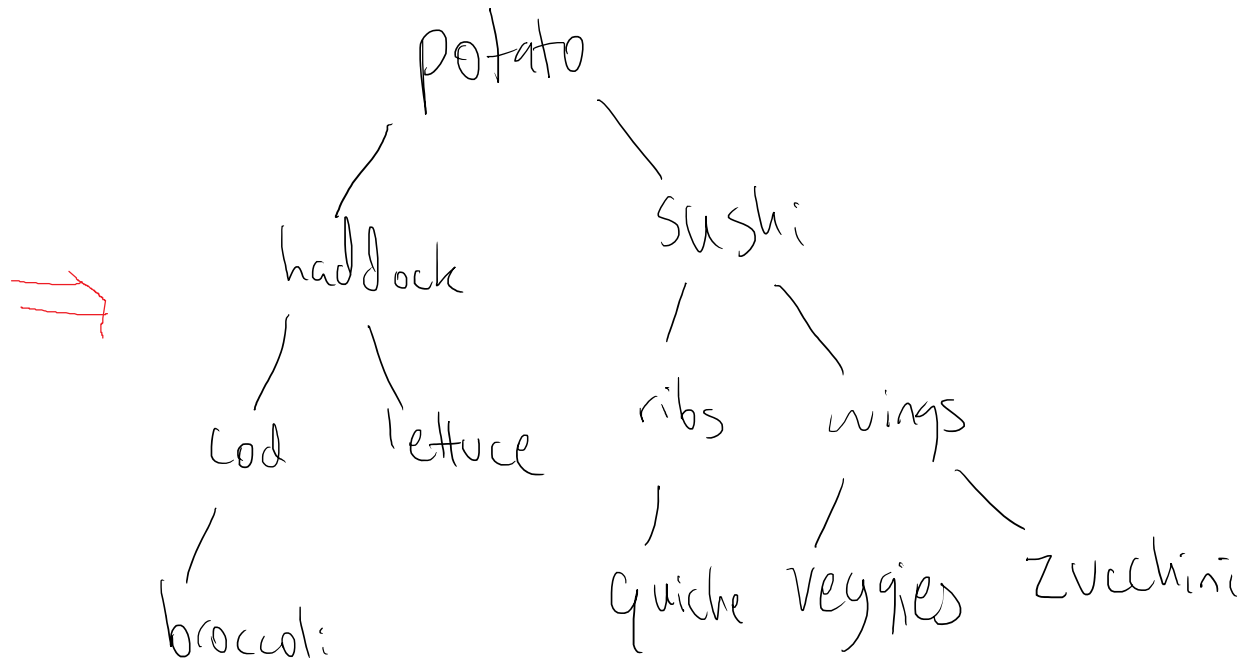 potato
haddock sushi
cod lettuce ribs wings
broccoli quiche veggies zucchini